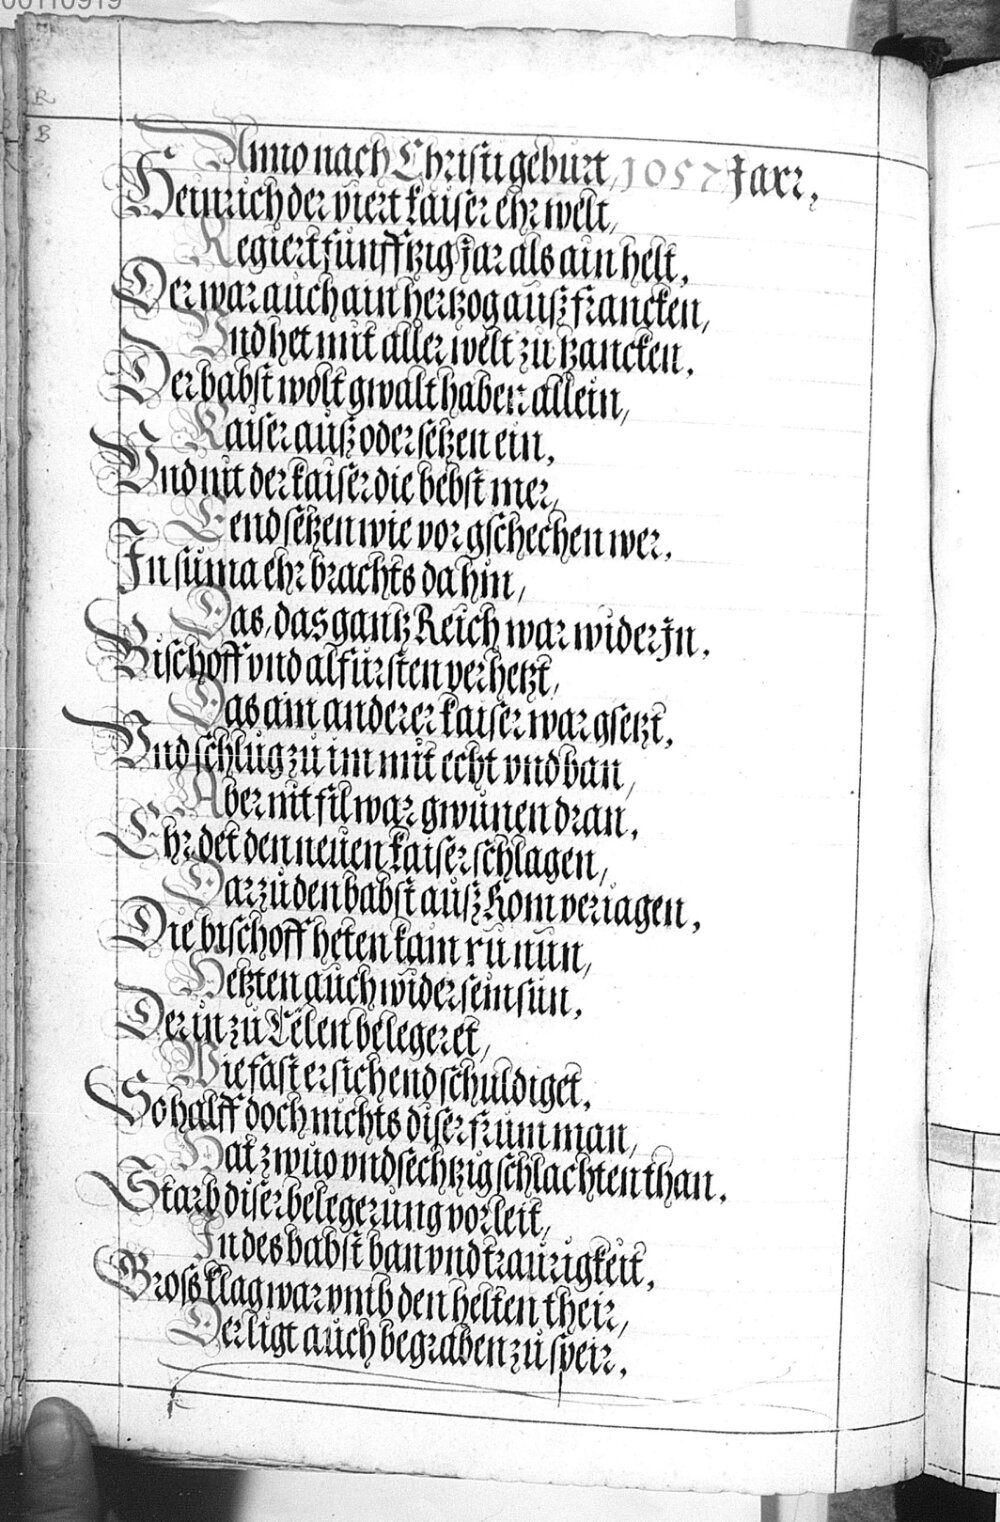 00110919
R
B
Anno nach Christi geburt, 1057 Jarr,
Heinrich der viert kaiser ehrwelt,
Regiert funfftzig Jar als ain helt,
Der war auch ain hertzog auß francken,
Vnd het mit aller welt zu tzancken,
Der babst wolt gwalt haben allein,
Kaiser auß oder setzen ein,
Vnd nit der kaiser die bebst mer,
Eendsetzen wie vor gschechen wer,
In suma ehr brachts dahin,
Das, das gantz Reich war wider In,
Bischoff vnd alfursten verhetzt,
Das ain anderer kaiser war gsetzt,
Vnd schlug zu im mit echt vnd ban,
Aber nit fil war gwunen dran,
Ehr det den neuen kaiser schlagen,
Darzu den babst auß Rom veriagen,
Die bischoff heten kain ru nun,
Hetzten auch wider sein sun,
Der in zu Cölen belegeret,
Wie fast er sich endschuldiget,
So halff doch nichts diser frum man,
Hat zwuo vnd sechtzig schlachten than,
Starb diser belegerung vor leit,
In des babst ban vnd traurigkeit,
Gross klag war vmb den helten their,
Der ligt auch begraben zu speir,